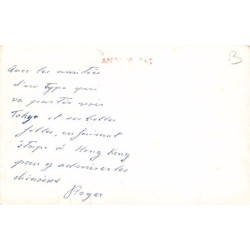 B
Avec les amitiés
d'un type qui
va partir voir
Tokyo et ses belles
filles, en faisant
étape à Hong Kong
pour y admirer les
chinoises
Roger